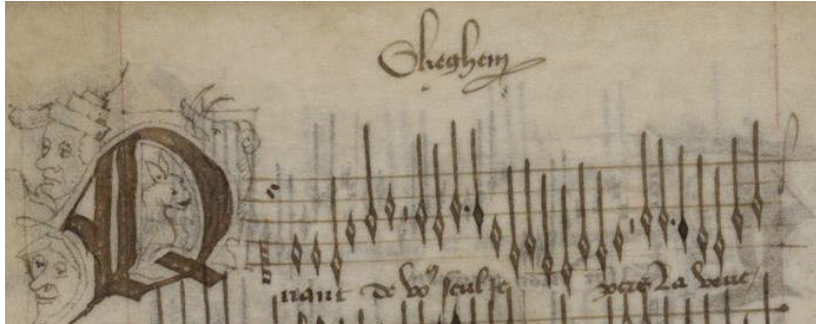 Okeghem
Quant de vo9 seul je pers la veue